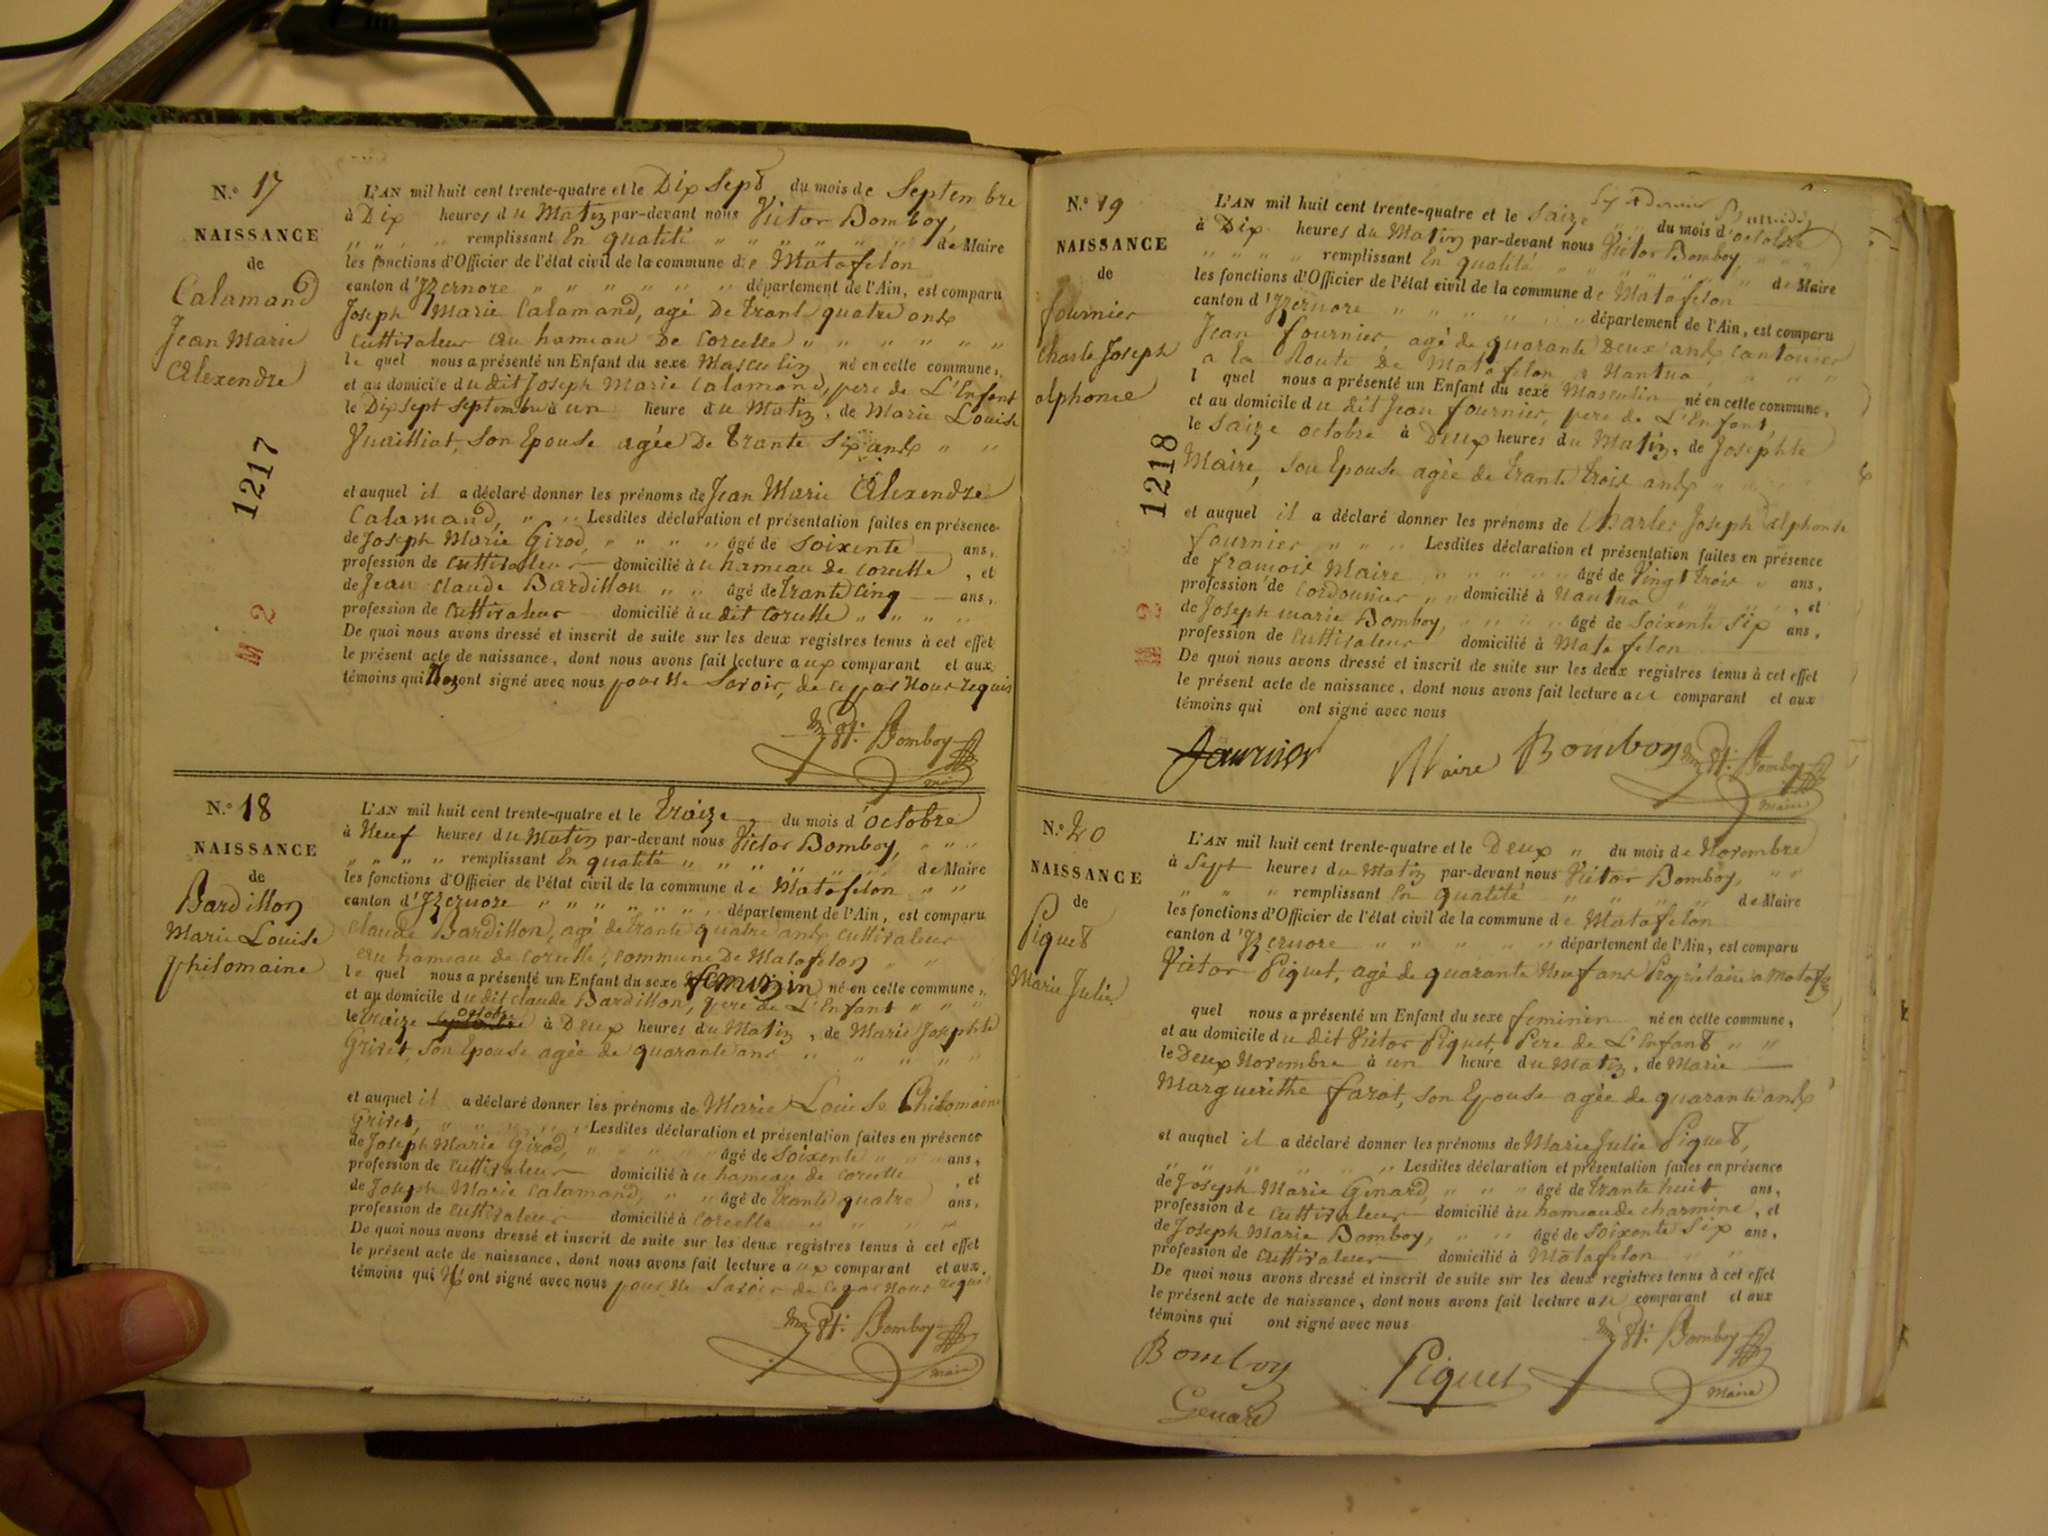 N.° 17
NAISSANCE
de
Calamand
Jean Marie
Alexendre
1217
M 2
L'AN mil huit cent trente-quatre et le Dix Sept du mois de Septembre
à Dix heures du Matin par-devant nous Victor Bomboy,
remplissant En qualité de Maire
les fonctions d'Officier de l'état civil de la commune de Matafelon
canton d'Yzernore département de l'Ain, est comparu
Joseph Marie Calamand, agé De trante quatre ans
Cultivateur au hameau De Corcelle
le quel nous a présenté un Enfant du sexe Masculin né en cette commune,
et au domicile du dit Joseph Marie Calamand, père de L'Enfant
le Dix sept Septembre à un heure du Matin, de Marie Louise
Vuailliat, son Epouse agée De trante Six ans
et auquel il a déclaré donner les prénoms de Jean Marie Alexendre
Calamand, Lesdites déclaration et présentation faites en présence
de Joseph Marie Girod, âgé de Soixente ans,
profession de Cultivateur domicilié au hameau de Corcelle, et
de Jean Claude Bardillon âgé de trante cinq ans,
profession de Cultivateur domicilié au dit Corcelle
De quoi nous avons dressé et inscrit de suite sur les deux registres tenus à cet effet
le présent acte de naissance, dont nous avons fait lecture aux comparant et aux
témoins qui Non ont signé avec nous pour Ne Savoir, de ce par Nous requis
Bomboy
maire
N.° 18
NAISSANCE
de
Bardillon
Marie Louise
philomaine
L'AN mil huit cent trente-quatre et le traize du mois d'octobre
à Neuf heures du Matin par-devant nous Victor Bomboy,
remplissant En qualité de Maire
les fonctions d'Officier de l'état civil de la commune de Matafelon
canton d'Yzernore département de l'Ain, est comparu
Claude Bardillon, agé de trante quatre ans Cultivateur
au hameau de Corcelle, commune De Matafelon
le quel nous a présenté un Enfant du sexe feminin né en cette commune,
et au domicile du dit Claude Bardillon, père de L'Enfant
octobre
le traize septembre à Deux heures du Matin, de Marie Josephte
Grivet, son Epouse agée de quarante ans
et auquel il a déclaré donner les prénoms de Marie Louise Philomaine
Grivet, Lesdites déclaration et présentation faites en présence
de Joseph Marie Girod, âgé de Soixente ans,
profession de Cultivateur domicilié au hameau de Corcelle, et
de Joseph Marie Calamand, âgé de trante quatre ans,
profession de Cultivateur domicilié à Corcelle
De quoi nous avons dressé et inscrit de suite sur les deux registres tenus à cet effet
le présent acte de naissance, dont nous avons fait lecture aux comparant et aux
témoins qui ont signé avec nous pour Ne Savoir de ce par Nous requis
Bomboy
maire
N.° 19
NAISSANCE
de
fournier
Charle Joseph
alphonse
1218
M 2
L'AN mil huit cent trente-quatre et le Saize du mois d'octobre
à Dix heures du Matin par-devant nous Victor Bomboy,
remplissant En qualité de Maire
les fonctions d'Officier de l'état civil de la commune de Matafelon
canton d'Yzernore département de l'Ain, est comparu
Jean fournier agé de quarante Deux ans cantonier
a la Route De Matafelon a Nantua
l quel nous a présenté un Enfant du sexe Masculin né en cette commune,
et au domicile du dit Jean fournier, père de L'Enfant,
le Saize octobre à Deux heures du Matin, de Josephte
Maire, son Epouse agée de trante trois ans
et auquel il a déclaré donner les prénoms de Charles Joseph alphonse
fournier Lesdites déclaration et présentation faites en présence
de francois Maire âgé de Vingt trois ans,
profession de Cordonnier domicilié à Nantua, et
de Joseph marie Bomboy, âgé de Soixente Six ans,
profession de Cultivateur domicilié à Matafelon
De quoi nous avons dressé et inscrit de suite sur les deux registres tenus à cet effet
le présent acte de naissance, dont nous avons fait lecture au comparant et aux
témoins qui ont signé avec nous
fournier Maire Bomboy Bomboy
maire
N.° 20
NAISSANCE
de
Piquet
Marie Julie
L'AN mil huit cent trente-quatre et le Deux du mois de Novembre
à Sept heures du Matin par-devant nous Victor Bomboy,
remplissant En qualité de Maire
les fonctions d'Officier de l'état civil de la commune de Matafelon
canton d'Yzernore département de l'Ain, est comparu
Victor Piquet, agé de quarante Neuf ans Propriétaire a Matafelon
quel nous a présenté un Enfant du sexe feminin né en cette commune,
et au domicile du dit Victor Piquet, Père de L'Enfant
le Deux Novembre à un heure du Matin, de Marie
Marguerithe farat, son Epouse agée de quarante ans
et auquel il a déclaré donner les prénoms de Marie Julie Piquet,
Lesdites déclaration et présentation faites en présence
de Joseph Marie Genard, âgé de trante huit ans,
profession de Cultivateur domicilié au hameau de charmine, et
de Joseph Marie Bomboy, âgé de Soixente Six ans,
profession de Cultivateur domicilié à Matafelon
De quoi nous avons dressé et inscrit de suite sur les deux registres tenus à cet effet
le présent acte de naissance, dont nous avons fait lecture au comparant et aux
témoins qui ont signé avec nous
Bomboy Piquet Bomboy
Genard maire